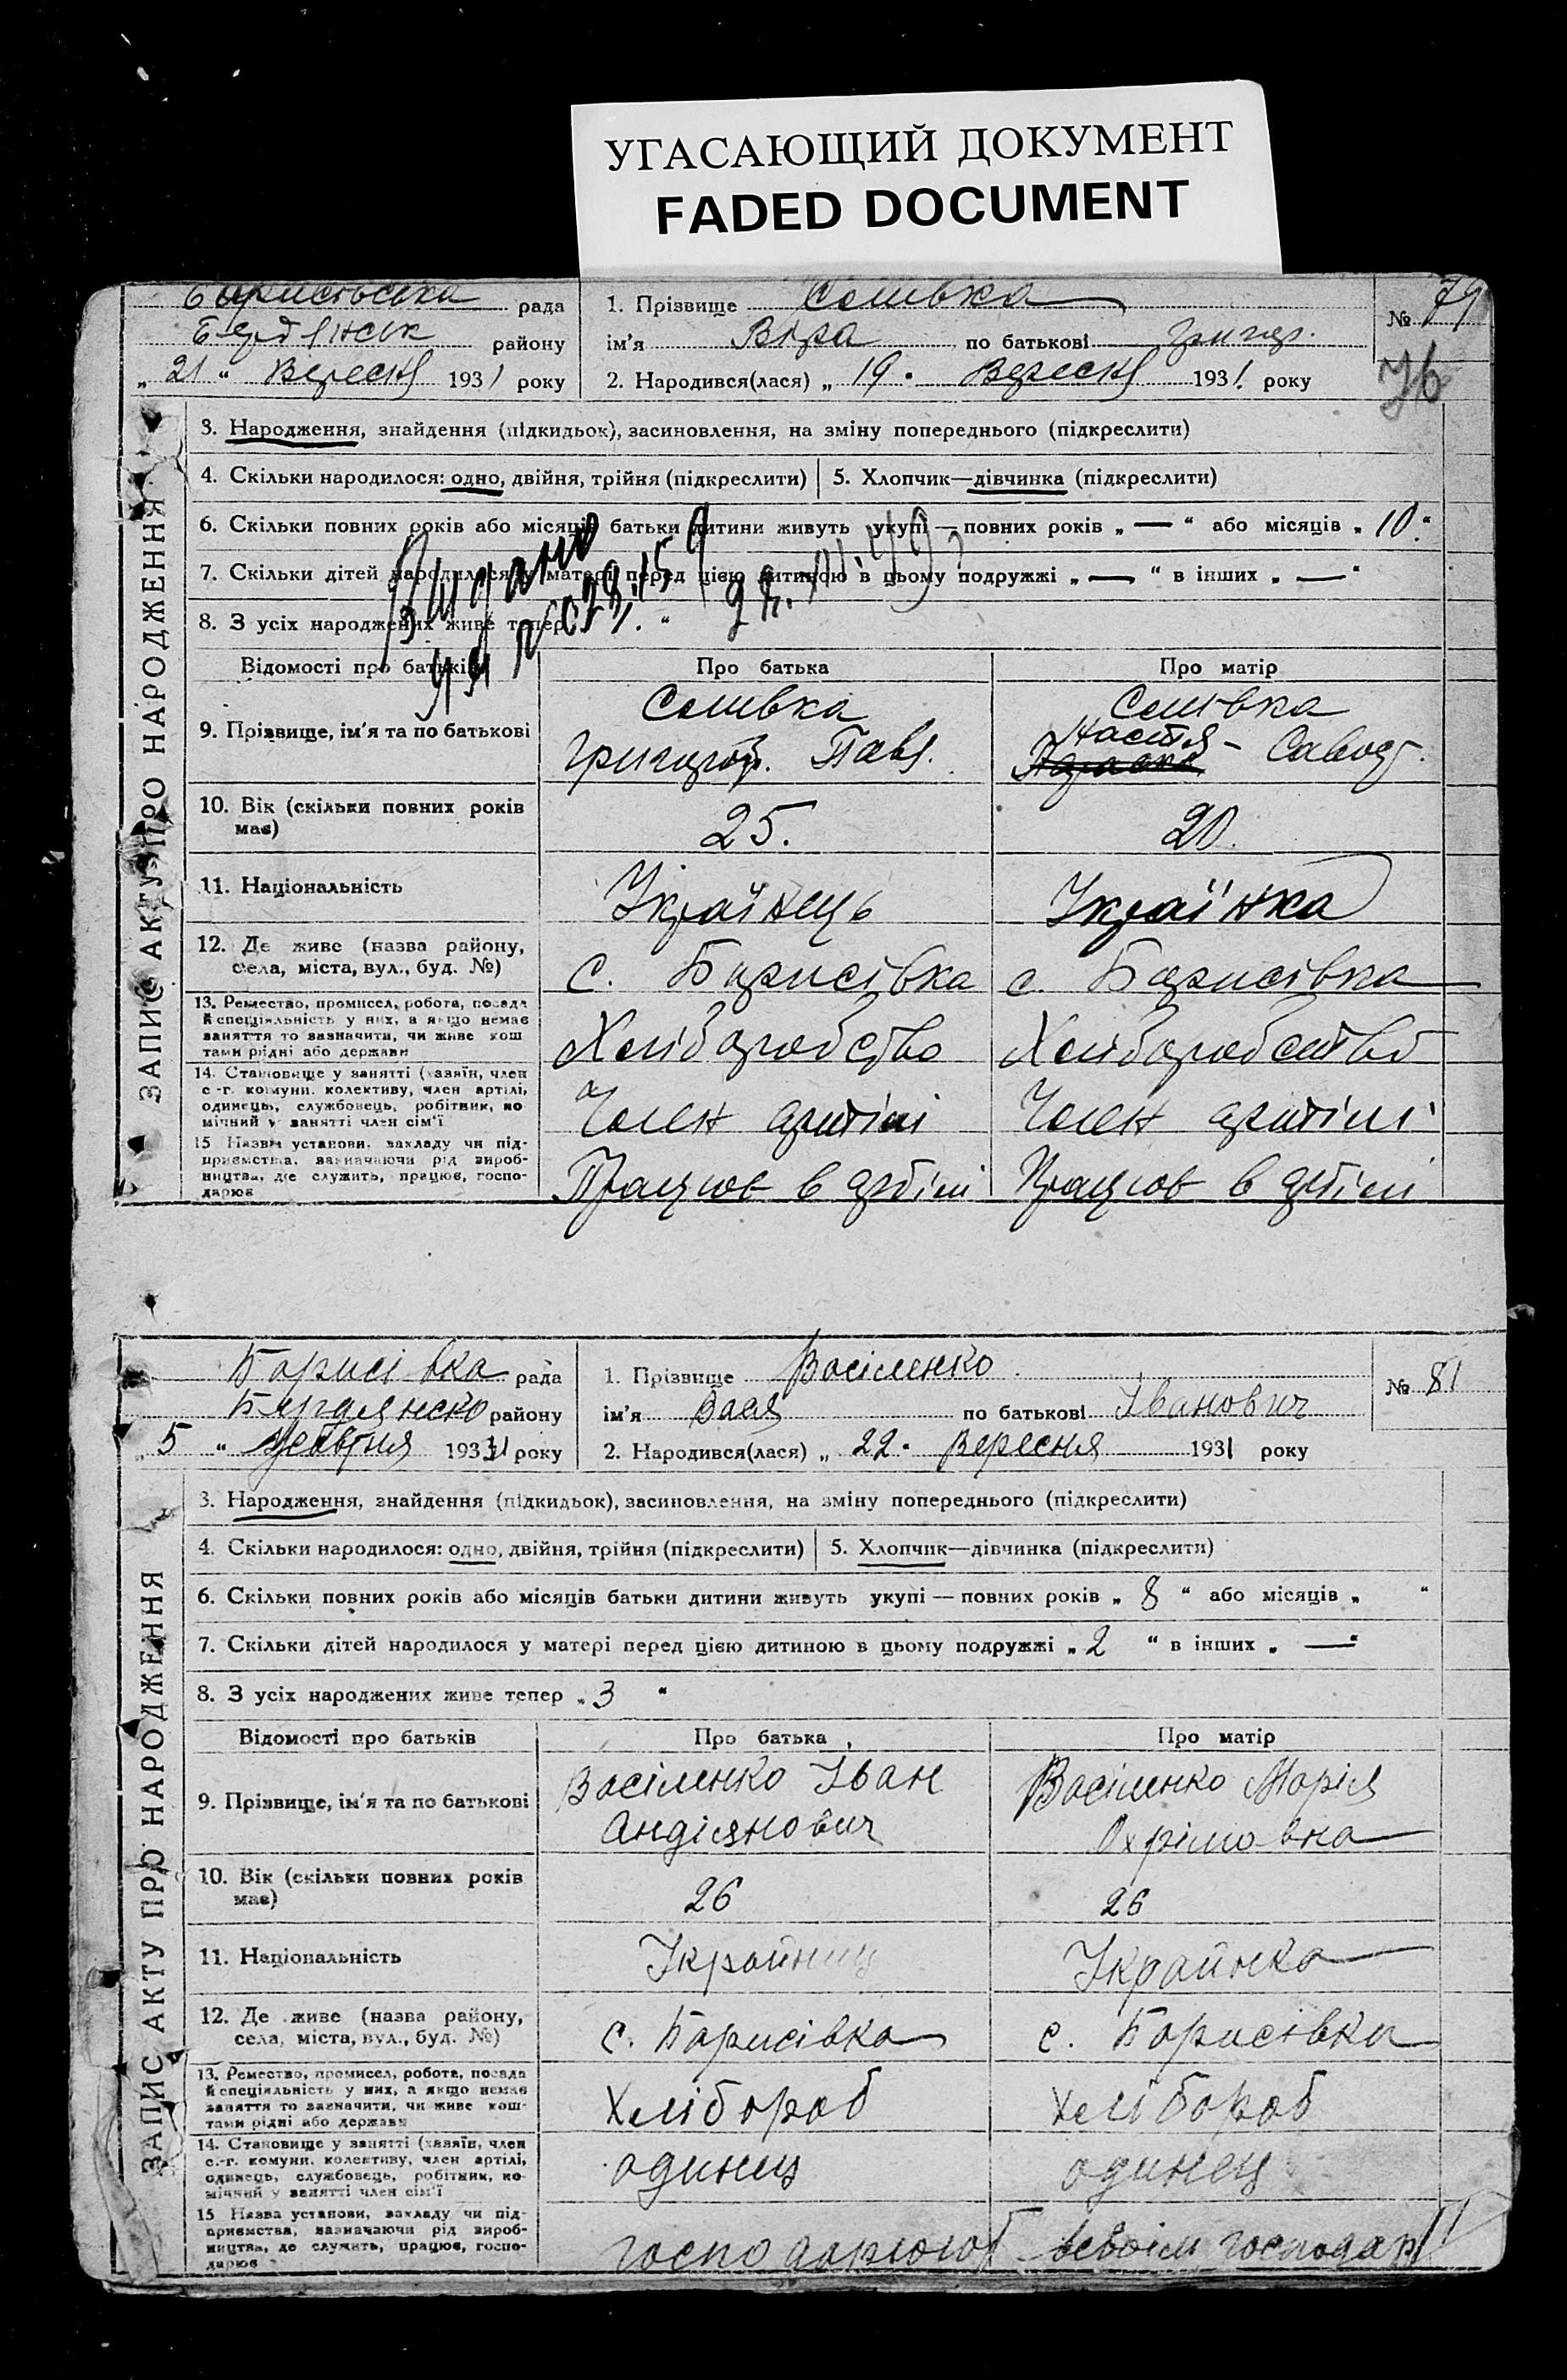 УГАСАЮЩИЙ ДОКУМЕНТ
FADED DOCUMENT
рада
району
„ 21 “ Вересня 1931 року
1. Прізвище Соливка
№ 79
76
ім'я Віра по батькові Григор.
2. Народився(лася) „ 19. Вересня 1931. року
ЗАПИС АКТУ ПРО НАРОДЖЕННЯ
3. Народження, знайдення (підкидьок), засиновлення, на зміну попереднього (підкреслити)
4. Скільки народилося: одно, двійня, трійня (підкреслити)
5. Хлопчик—дівчинка (підкреслити)
6. Скільки повних років або місяців батьки дитини живуть укупі — повних років „ — “ або місяців „ 10. “
7. Скільки дітей народилося у матері перед цією дитиною в цьому подружжі „ — “ в інших „ — “
8. З усіх народжених живе тепер „ 1. “
Видано
Відомості про батьків
Про батька
Про матір
9. Прізвище, ім'я та по батькові
Соливка
Григор. Павл.
Соливка
Настя -
10. Вік (скільки повних років має)
25.
20.
11. Національність
Українець
Українка
12. Де живе (назва району, села, міста, вул., буд. №)
с. Борисівка
с. Борисівка
13. Ремество, промисел, робота, посада й спеціяльність у них, а якщо немає заняття то зазначити, чи живе кош тами рідні або держави
Хліборобство
Хліборобство
14. Становище у занятті (хазяїн, член с.-г. комуни, колективу, член артілі, одинець, службовець, робітник, по мічний у занятті член сім'ї
Член артілі
Член артілі
15 Назва установи, закладу чи під- приємства, зазначаючи рід вироб- ництва, де служить, працює, госпо- дарює
Працює в артілі
Працює в артілі
Борисівка рада
району
„ 5 “ 1931 року
1. Прізвище Васіленко
№ 81
ім'я Вася по батькові Іванович
2. Народився(лася) „ 22. Вересня 1931 року
ЗАПИС АКТУ ПРО НАРОДЖЕННЯ
3. Народження, знайдення (підкидьок), засиновлення, на зміну попереднього (підкреслити)
4. Скільки народилося: одно, двійня, трійня (підкреслити)
5. Хлопчик—дівчинка (підкреслити)
6. Скільки повних років або місяців батьки дитини живуть укупі — повних років „ 8 “ або місяців „ “
7. Скільки дітей народилося у матері перед цією дитиною в цьому подружжі „ 2 “ в інших „ — “
8. З усіх народжених живе тепер „ 3 “
Відомості про батьків
Про батька
Про матір
9. Прізвище, ім'я та по батькові
Васіленко Іван
Андіянович
Васіленко Марія
Охрімовна
10. Вік (скільки повних років має)
26
26
11. Національність
Украйинка
12. Де живе (назва району, села, міста, вул., буд. №)
с. Борисівка
с. Борисівка
13. Ремество, промисел, робота, посада й спеціяльність у них, а якщо немає заняття то зазначити, чи живе кош- тами рідні або держави
Хлібороб
хлібороб
14. Становище у занятті (хазяїн, член с.-г. комуни, колективу, член артілі, одинець, службовець, робітник, по- мічний у занятті член сім'ї
одинец
одинец
15 Назва установи, закладу чи під- приємства, зазначаючи рід вироб- ництва, де служить, працює, госпо- дарює
господарюют всвоім господар